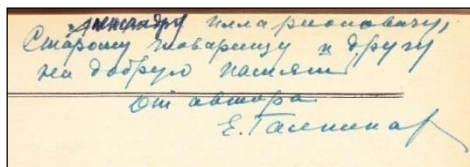 Александру Иллари­оновичу,
Старому товарищу и другу
на добрую память
От автора
Е.